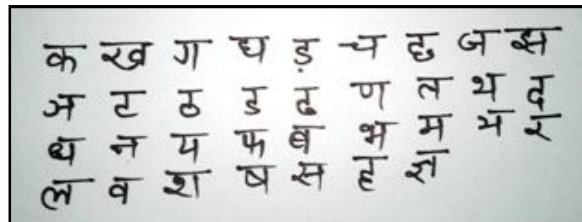 क ख ग घ ड़ च छ ज झ
ञ ट ठ ड ढ ण त थ द
ध न य फ ब भ म य र
ल व श ष स ह ज्ञ